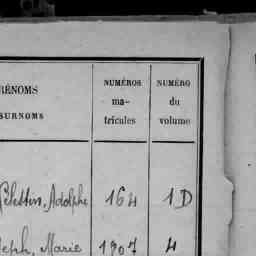 RÉNOMS
SURNOMS
NUMÉROS
ma-
tricules
NUMÉRO
du
volume
Adolphe 164 1D
eph, Marie 1907 4